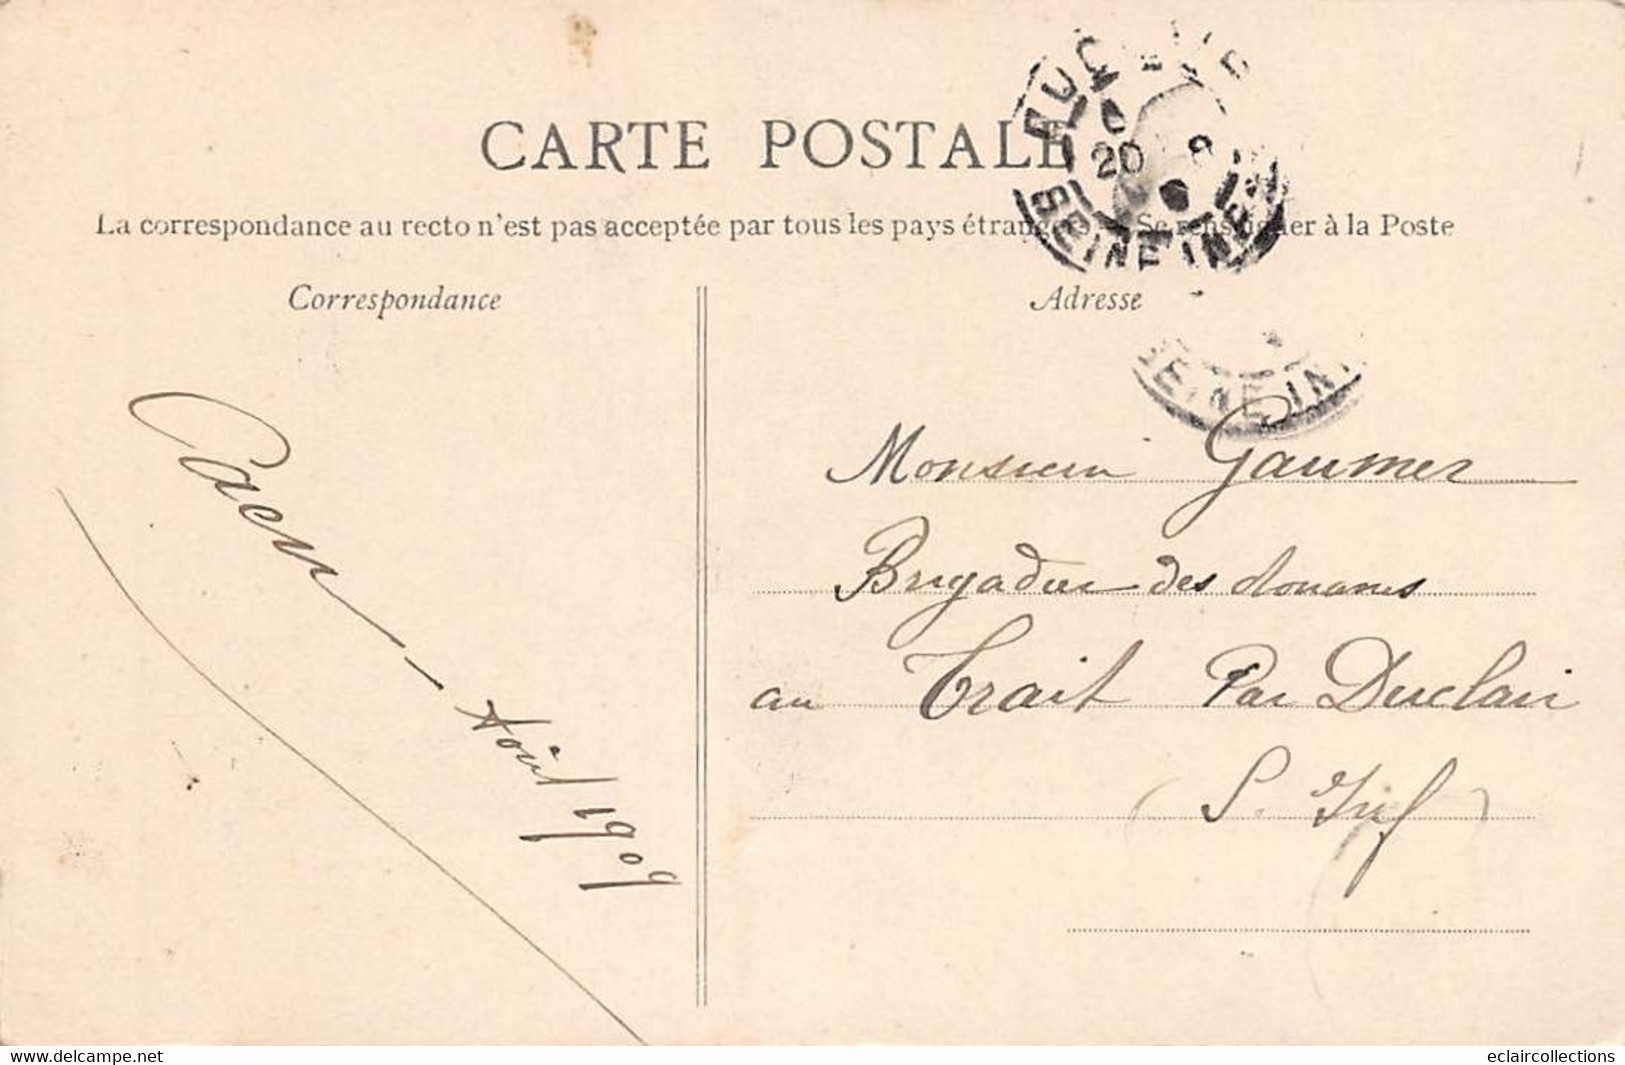 CARTE POSTALE
La correspondance au recto n'est pas acceptée par tous les pays étrangers Se renseigner à la Poste
Correspondance
Adresse
20
SEINE INFRE
SEINE INF
Caen - Août 1909
Monsieur Gaumer
Brigadier des douanes
au Trait Par Duclair
(S. Inf)
www.delcampe.net
eclaircollections